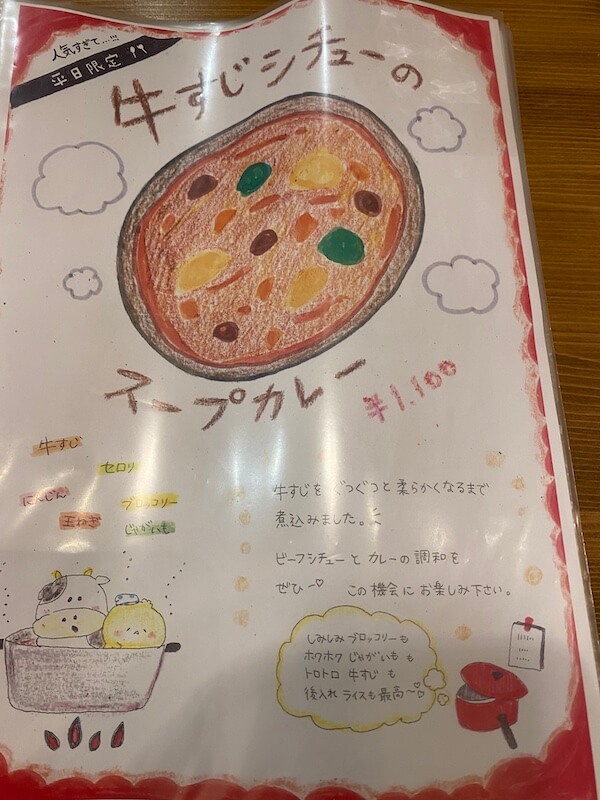 人気すぎて...!!!
平日限定
牛すじシチューの
スープカレー
¥1,100
牛すじ
セロリ
にんじん
ブロッコリー
玉ねぎ
じゃがいも
牛すじを ぐつぐつと柔らかくなるまで
煮込みました。
ビーフシチューと カレーの調和を
ぜひ ー♡ この機会に お楽しみ下さい。
しみしみ ブロッコリーも
ホクホク じゃがいも も
トロトロ 牛すじ も
後入れ ライスも 最高〜♡